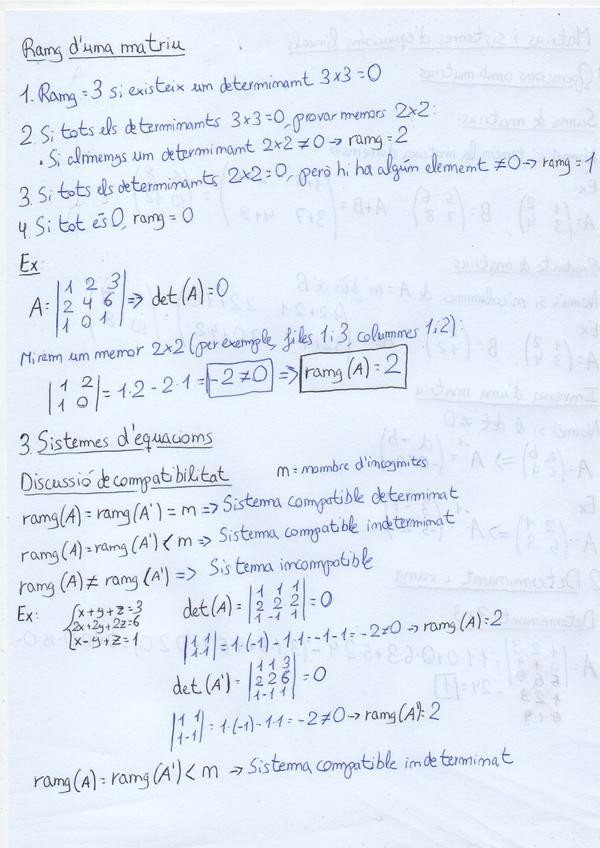 Rang d'una matriu
1. Rang = 3 si existeix un determinant 3x3 = 0
2. Si tots els determinants 3x3 = 0, provar menors 2x2:
• Si almenys un determinant 2x2 ≠ 0 → rang = 2
3. Si tots els determinants 2x2 = 0, però hi ha algun element ≠ 0 → rang = 1
4. Si tot és 0, rang = 0
Ex:
A = |1 2 3|
|2 4 6|
|1 0 1| => det(A) = 0
Mirem un menor 2x2 (per exemple, files 1 i 3, columnes 1 i 2):
|1 2|
|1 0| = 1·2 - 2·1 = -2 ≠ 0 => rang(A) = 2
3. Sistemes d'equacions
Discussió de compatibilitat n = nombre d'incògnites
rang(A) = rang(A') = n => Sistema compatible determinat
rang(A) = rang(A') < n => Sistema compatible indeterminat
rang(A) ≠ rang(A') => Sistema incompatible
Ex: {x+y+z=3
2x+2y+2z=6
x-y+z=1
det(A) = |1 1 1|
|2 2 2|
|1 -1 1| = 0
|1 1|
|1 -1| = 1·(-1) - 1·1 = -1 - 1 = -2 ≠ 0 → rang(A) = 2
det(A') = |1 1 3|
|2 2 6|
|1 -1 1| = 0
|1 1|
|1 -1| = 1·(-1) - 1·1 = -2 ≠ 0 → rang(A') = 2
rang(A) = rang(A') < n → Sistema compatible indeterminat